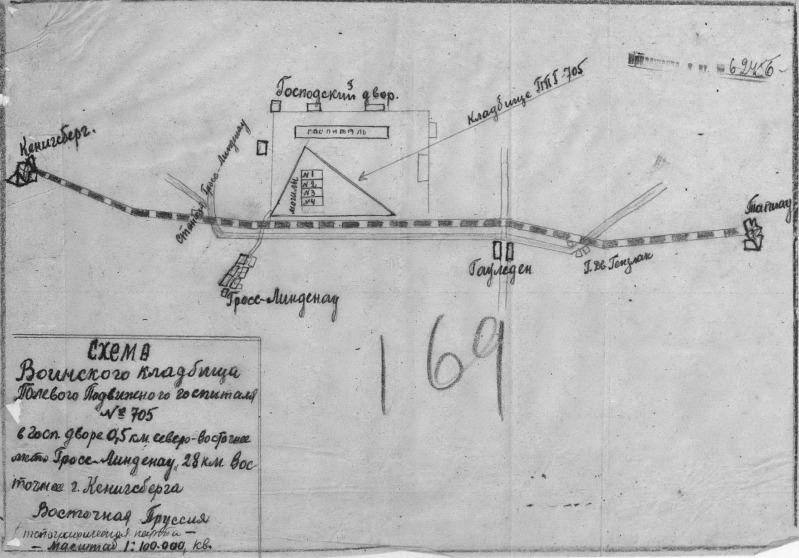 6-2456
Господский двор.
Кладбище ППГ-705
Кенигсберг.
госпиталь
Станция Гросс-Линденау
могилы
№1
№2
№3
№4
Тапиау
Гауледен
Г. дв.
Гросс-Линденау
169
Схема
Воинского кладбища
Полевого Подвижного госпиталя
№ 705
в Госп. дворе 0,5 км северо-восточнее
Гросс-Линденау, 28 км Вос-
точнее г. Кенигсберга
Восточная Пруссия
топографическая
- Масштаб 1:100.000, кв.